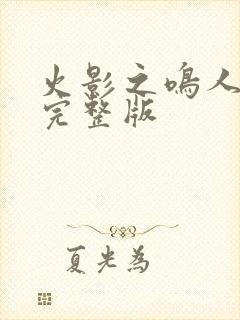 火影之鸣人
完整版
夏光为